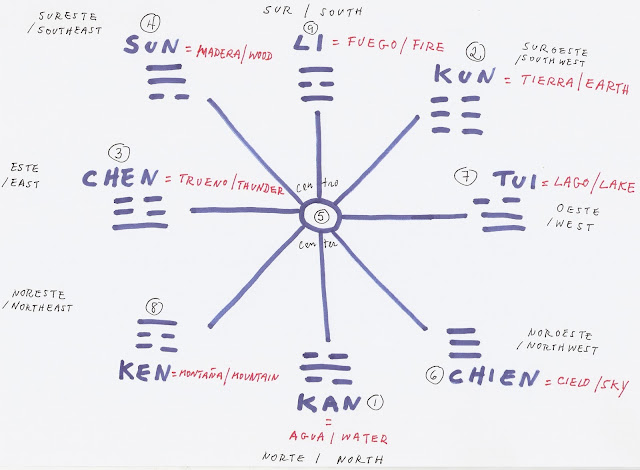 SUR / SOUTH
9
LI = FUEGO/FIRE
SURESTE
/SOUTHEAST
4
SUN = MADERA/WOOD
2
SUROESTE
/SOUTHWEST
KUN = TIERRA/EARTH
ESTE
/EAST
3
CHEN = TRUENO/THUNDER
centro
5
center
7
TUI = LAGO/LAKE
OESTE
/WEST
NORESTE
/NORTHEAST
8
KEN = MONTAÑA/MOUNTAIN
NOROESTE
/NORTHWEST
6 CHIEN = CIELO/SKY
KAN 1
=
AGUA/WATER
NORTE / NORTH